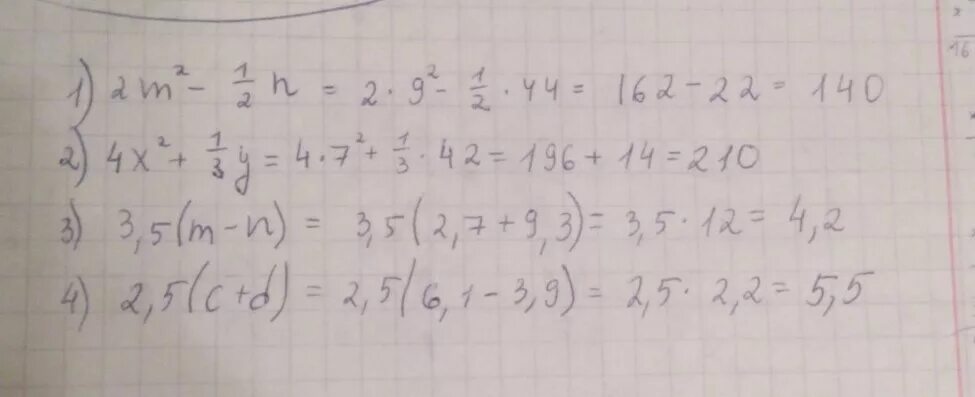 1) 2m² - 1/2 n = 2 · 9² - 1/2 · 44 = 162 - 22 = 140
2) 4x² + 1/3 y = 4 · 7² + 1/3 · 42 = 196 + 14 = 210
3) 3,5(m - n) = 3,5(2,7 + 9,3) = 3,5 · 12 = 4,2
4) 2,5(c + d) = 2,5(6,1 - 3,9) = 2,5 · 2,2 = 5,5
16